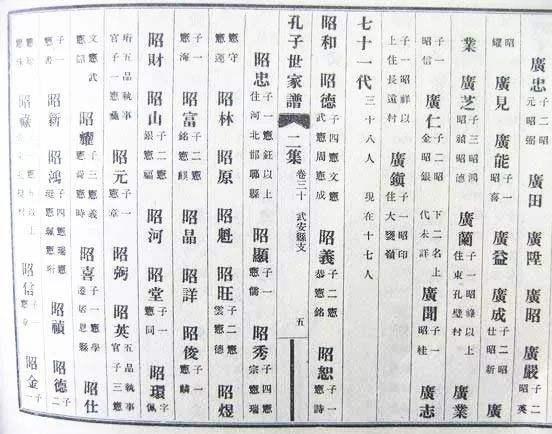 廣忠 子二昭元昭弼 廣田 廣陞 廣嚴 子二
昭耀 廣見 廣能 子一昭喬 廣益 廣成 子二昭仕昭新 廣
業 廣芝 子三昭鴻昭禎昭德 廣蘭 以上住東孔壁村 廣業
子一昭信 廣仁 子二昭金昭銀 下二名上代未詳 廣聞 子一昭桂 廣志
子一昭祥以上住長遠村 廣鎮 子一昭印住大甕嶺
七十一代 三十八人 現在十七人
昭和 昭德 子四憲文憲武憲周憲成 昭義 子二憲恭憲銘 昭恕 子一憲詩
孔子世家譜 二集 卷三十 武安縣支 五
昭忠 子一憲鈺以上住河北邯鄲縣 昭顯 子一憲儒 昭秀 子四憲宗憲瑞
憲守憲蓮 昭林 昭原 昭魁 昭旺 子二憲雲憲德 昭煜
子一憲海 昭富 子二憲銘憲麒 昭晶 昭詳 昭俊 子一憲麟
昭財 昭山 子二憲銀憲福 昭河 昭堂 子一憲同 昭環 字佩
珩五品執事官子一憲驥 昭元 子一憲章 昭弼 昭英 五品執事官子三憲
文憲武憲韜 昭耀 子三憲義憲喬憲時 昭喜 子一憲學遷感恩縣 昭仕
子一憲書 昭新 昭鴻 子四憲瑞憲珽憲珮憲珩 昭禎 昭德 子二
憲珠 昭祿 以上 昭信 子一憲 昭金 子一